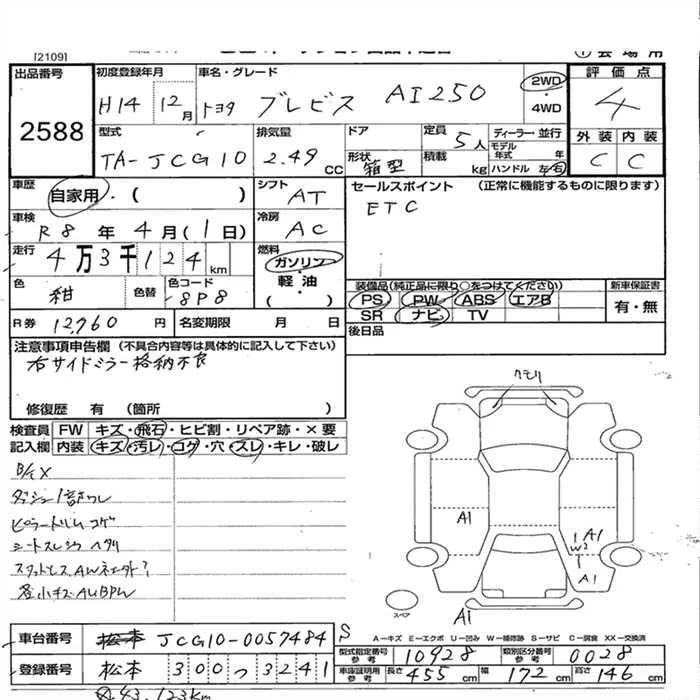 [2109]
出品番号 初度登録年月 車名・グレード 2WD ・ 4WD 評価点
2588 H14 12月 トヨタ ブレビス AI250 4
型式 排気量 ドア 定員 5人 ディーラー・並行 外装 内装
TA-JCG10 2.49 CC 形状 箱型 積載 kg モデル年式 年 ハンドル 左右 C C
車歴 自家用・( ) シフト AT セールスポイント (正常に機能するものに限ります)
車検 R8年4月(1日) 冷房 AC ETC
走行 4万3千124km 燃料 ガソリン・軽油・( )
色 紺 色替 色コード 8P8
装備品(純正品に限り○をつけてください) 新車保証書
PS PW ABS エアB 有・無
SR ナビ TV
R券 12,760円 名変期限 月 日 後日品
注意事項申告欄 (不具合内容等は具体的に記入して下さい)
右サイドミラー格納不良
修復歴 有 (箇所 )
検査員 FW キズ・飛石・ヒビ割・リペア跡・×要
記入欄 内装 キズ・汚レ・コゲ・穴・スレ・キレ・破レ
クモリ
B/tX
ピラートリムコゲ
A1
A1
W2
A1
スペア
A1
車台番号 JCG10-0057484 S
A-キズ E-エクボ U-凹み W-補修跡 S-サビ C-腐食 XX-交換済
型式指定番号 参考 10928 類別区分番号 参考 0028
登録番号 松本 300 つ 3241 車庫証明用 参考 長さ 455cm 幅 172cm 高さ 146cm
43,123km